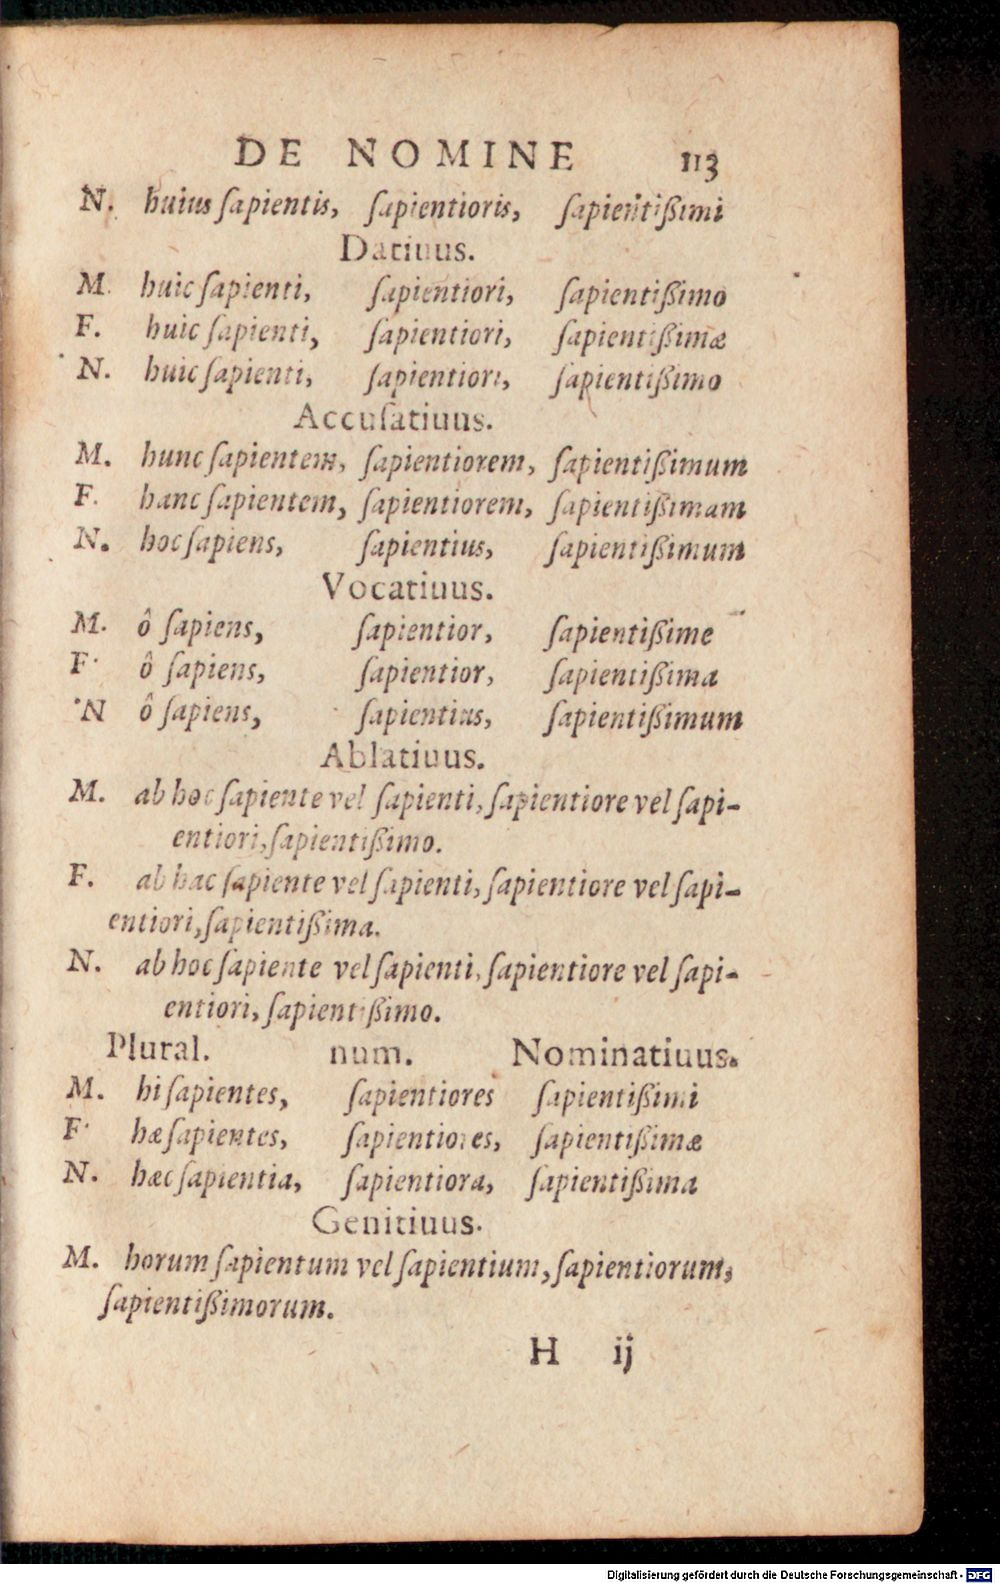 DE NOMINE 113
N. huius ſapientis, ſapientioris, ſapientißimi
Datiuus.
M. huic ſapienti, ſapientiori, ſapientißimo
F. huic ſapienti, ſapientiori, ſapientißimæ
N. huic ſapienti, ſapientiori, ſapientißimo
Accuſatiuus.
M. hunc ſapientem, ſapientiorem, ſapientißimum
F. hanc ſapientem, ſapientiorem, ſapientißimam
N. hoc ſapiens, ſapientius, ſapientißimum
Vocatiuus.
M. ô ſapiens, ſapientior, ſapientißime
F. ô ſapiens, ſapientior, ſapientißima
N ô ſapiens, ſapientius, ſapientißimum
Ablatiuus.
M. ab hoc ſapiente vel ſapienti, ſapientiore vel ſapi-
entiori, ſapientißimo.
F. ab hac ſapiente vel ſapienti, ſapientiore vel ſapi-
entiori, ſapientißima.
N. ab hoc ſapiente vel ſapienti, ſapientiore vel ſapi-
entiori, ſapientißimo.
Plural. num. Nominatiuus.
M. hi ſapientes, ſapientiores ſapientißimi
F. hæ ſapientes, ſapientiores, ſapientißimæ
N. hæc ſapientia, ſapientiora, ſapientißima
Genitiuus.
M. horum ſapientum vel ſapientium, ſapientiorum,
ſapientißimorum.
H ij
Digitalisierung gefördert durch die Deutsche Forschungsgemeinschaft - DFG